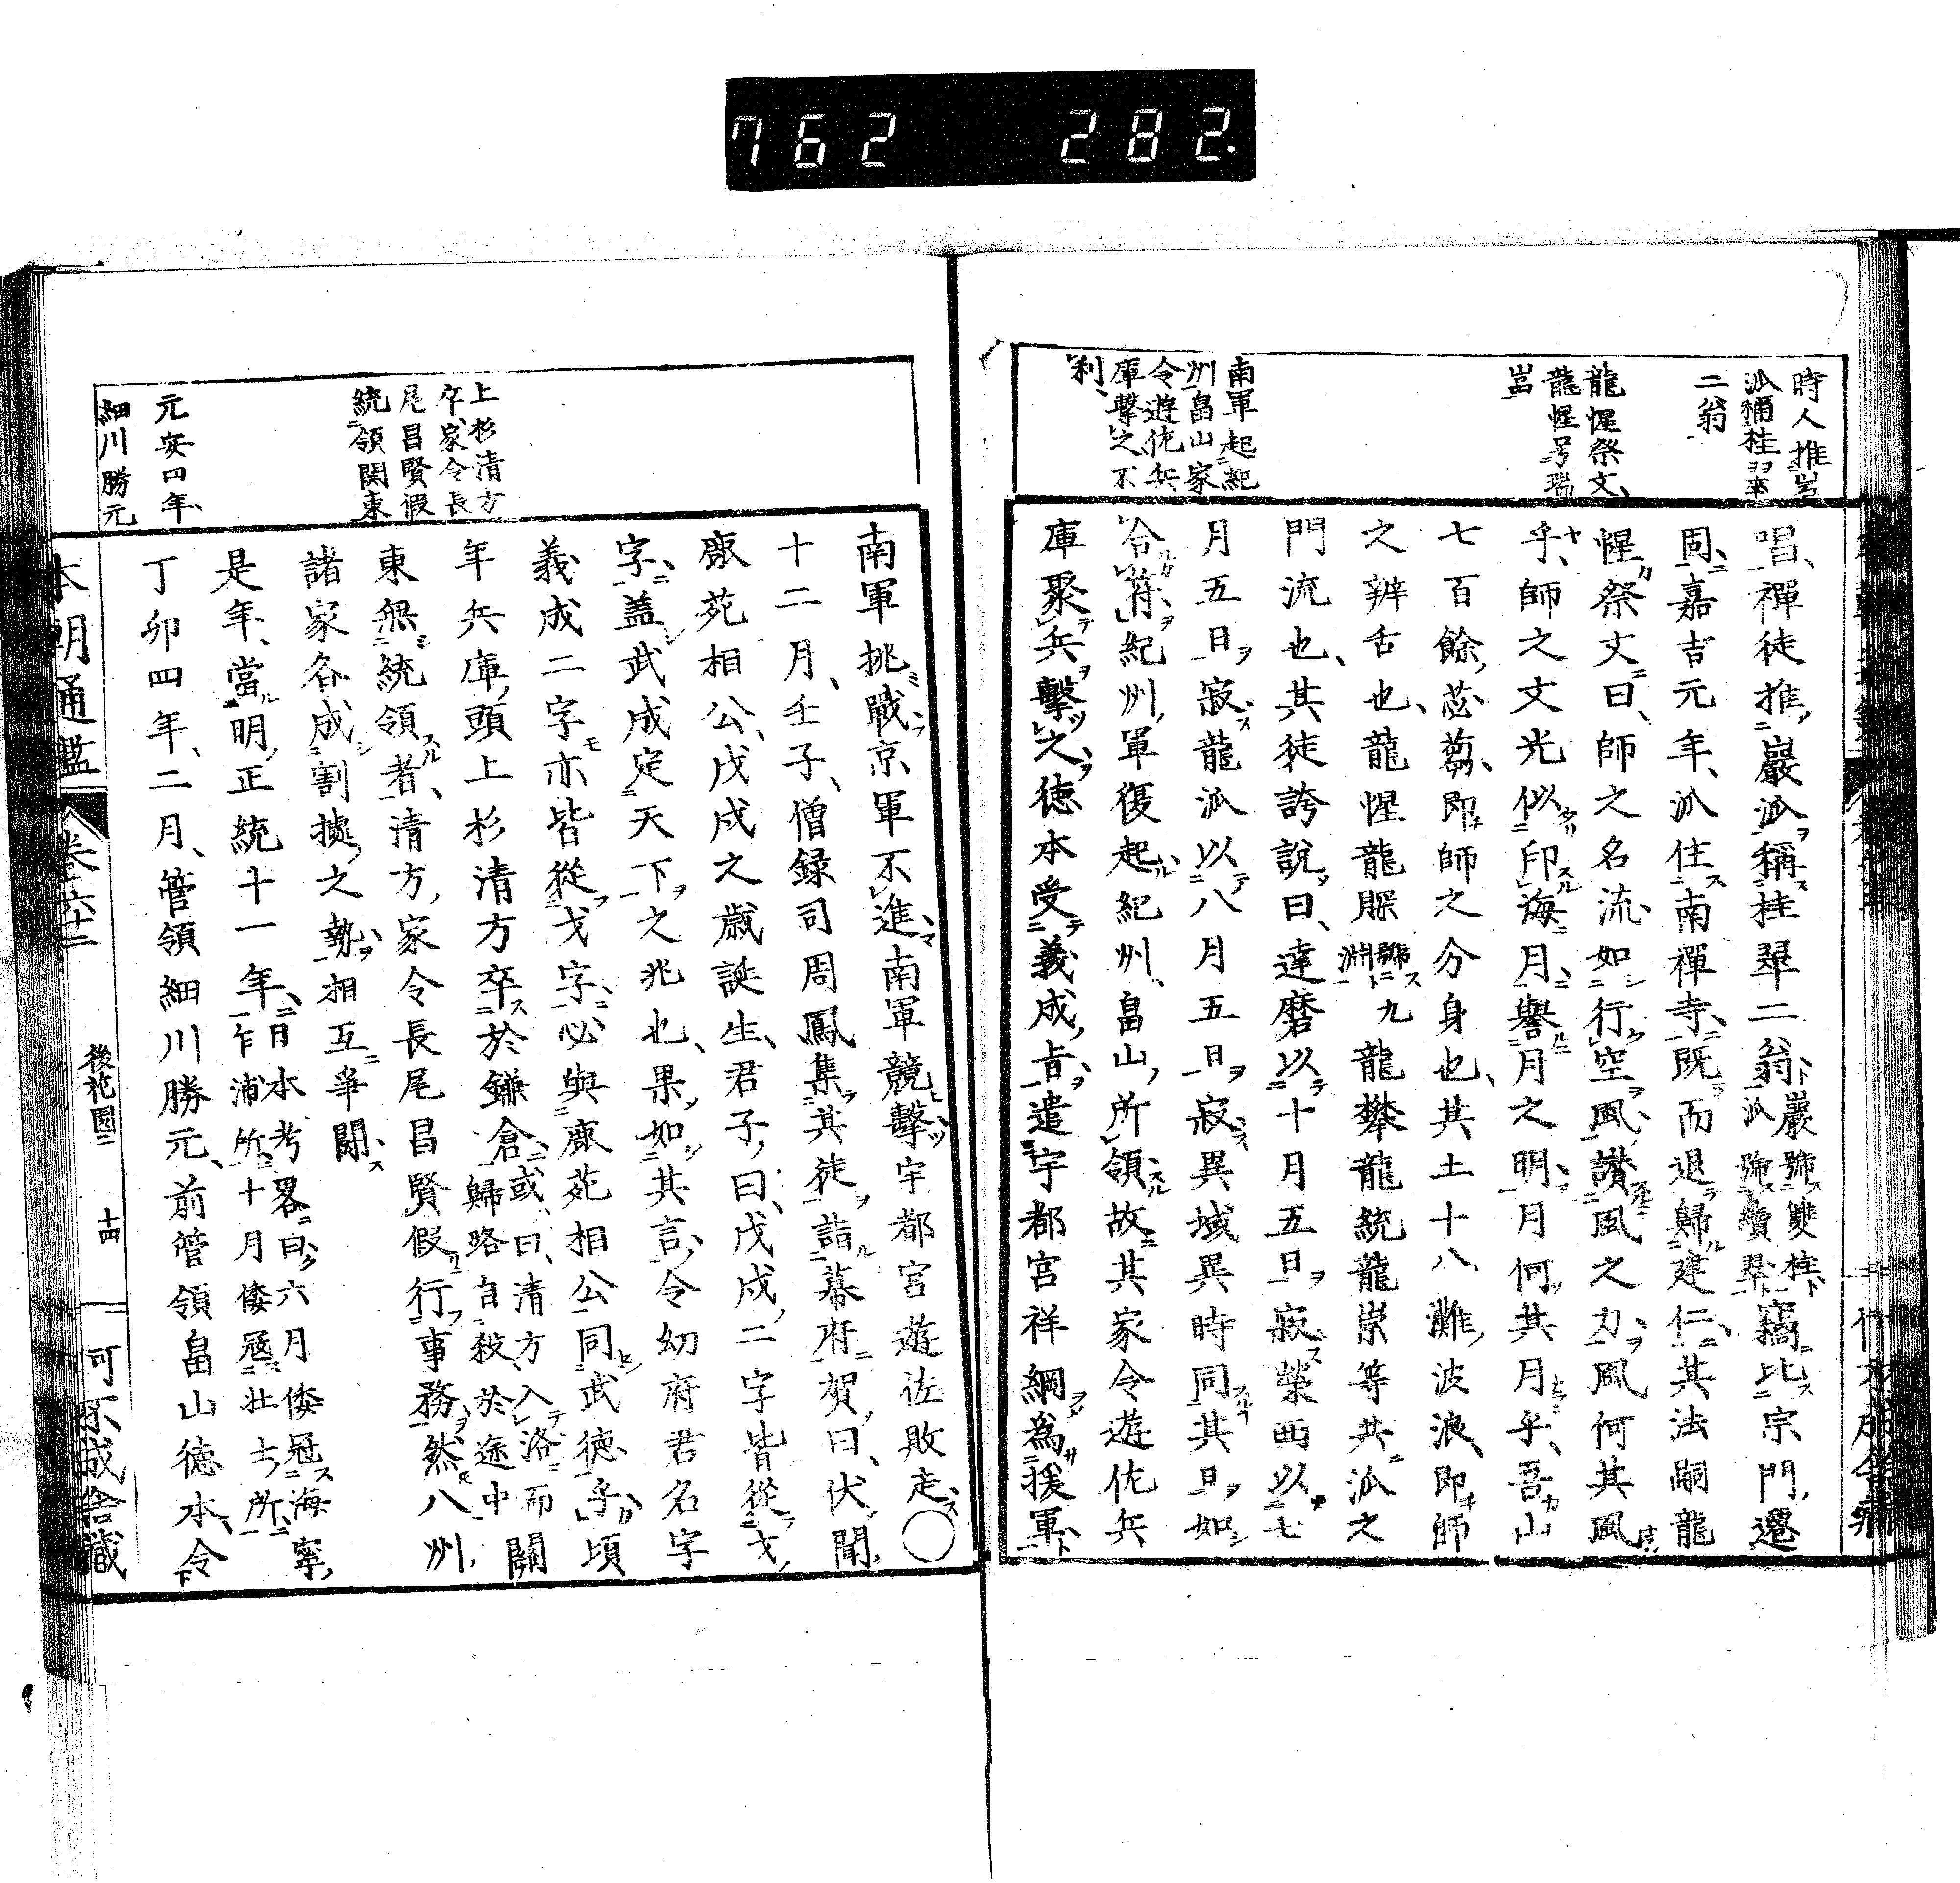 762 282.
時人推岩
泒稱桂翠
二翁
龍惺祭文、
龍惺号瑞
岩
南軍起紀
州畠山家
令遊佐兵
庫擊之不
利、
唱、禪徒推巖泒稱桂翠二翁巖號雙桂泒號續翠竊比宗門遷
固、嘉吉元年、泒住南禪寺、既而退歸建仁、其法嗣龍
惺祭文曰、師之名流如行空風、讃風之力、風何其風
乎、師之文光似印海月、譽月之明、月何其月乎、吾山
七百餘苾蒭、即師之分身也、其土十八灘波浪、即師
之辨舌也、龍惺龍脵號淵九龍攀龍統龍崇等共泒之
門流也、其徒誇說曰、達磨以十月五日寂、榮西以七
月五日寂、龍泒以八月五日寂、異域異時同其日、如
合符、紀州軍復起紀州、畠山所領、故其家令遊佐兵
庫聚兵擊之、德本受義成旨、遣宇都宮祥綱爲援軍、
上杉清方
卒、家令長
尾昌賢假
統領関東
元安四年、
細川勝元
南軍挑戰、京軍不進、南軍競擊、宇都宮遊佐敗走、〇
十二月、壬子、僧録司周鳳集其徒詣幕府賀曰、伏聞
廐苑相公、戊戌之歳誕生、君子曰、戊戌二字皆從戈
字、盖武成定天下之兆也、果如其言、今幼府君名字
義成二字亦皆從戈字、必與廐苑相公同武德乎、頃
年兵庫頭上杉清方卒於鎌倉、或曰、清方入洛而歸路自殺於途中關
東無統領者、清方家令長尾昌賢假行事務、然八州
諸家各成割據之勢、相互爭鬪、
是年、當明正統十一年、日本考畧曰、六月倭冦海寧乍浦所、十月倭寇壯士所、
丁卯四年、二月、管領細川勝元、前管領畠山德本、令
本朝通鑑 卷六十二 後花園二 十四